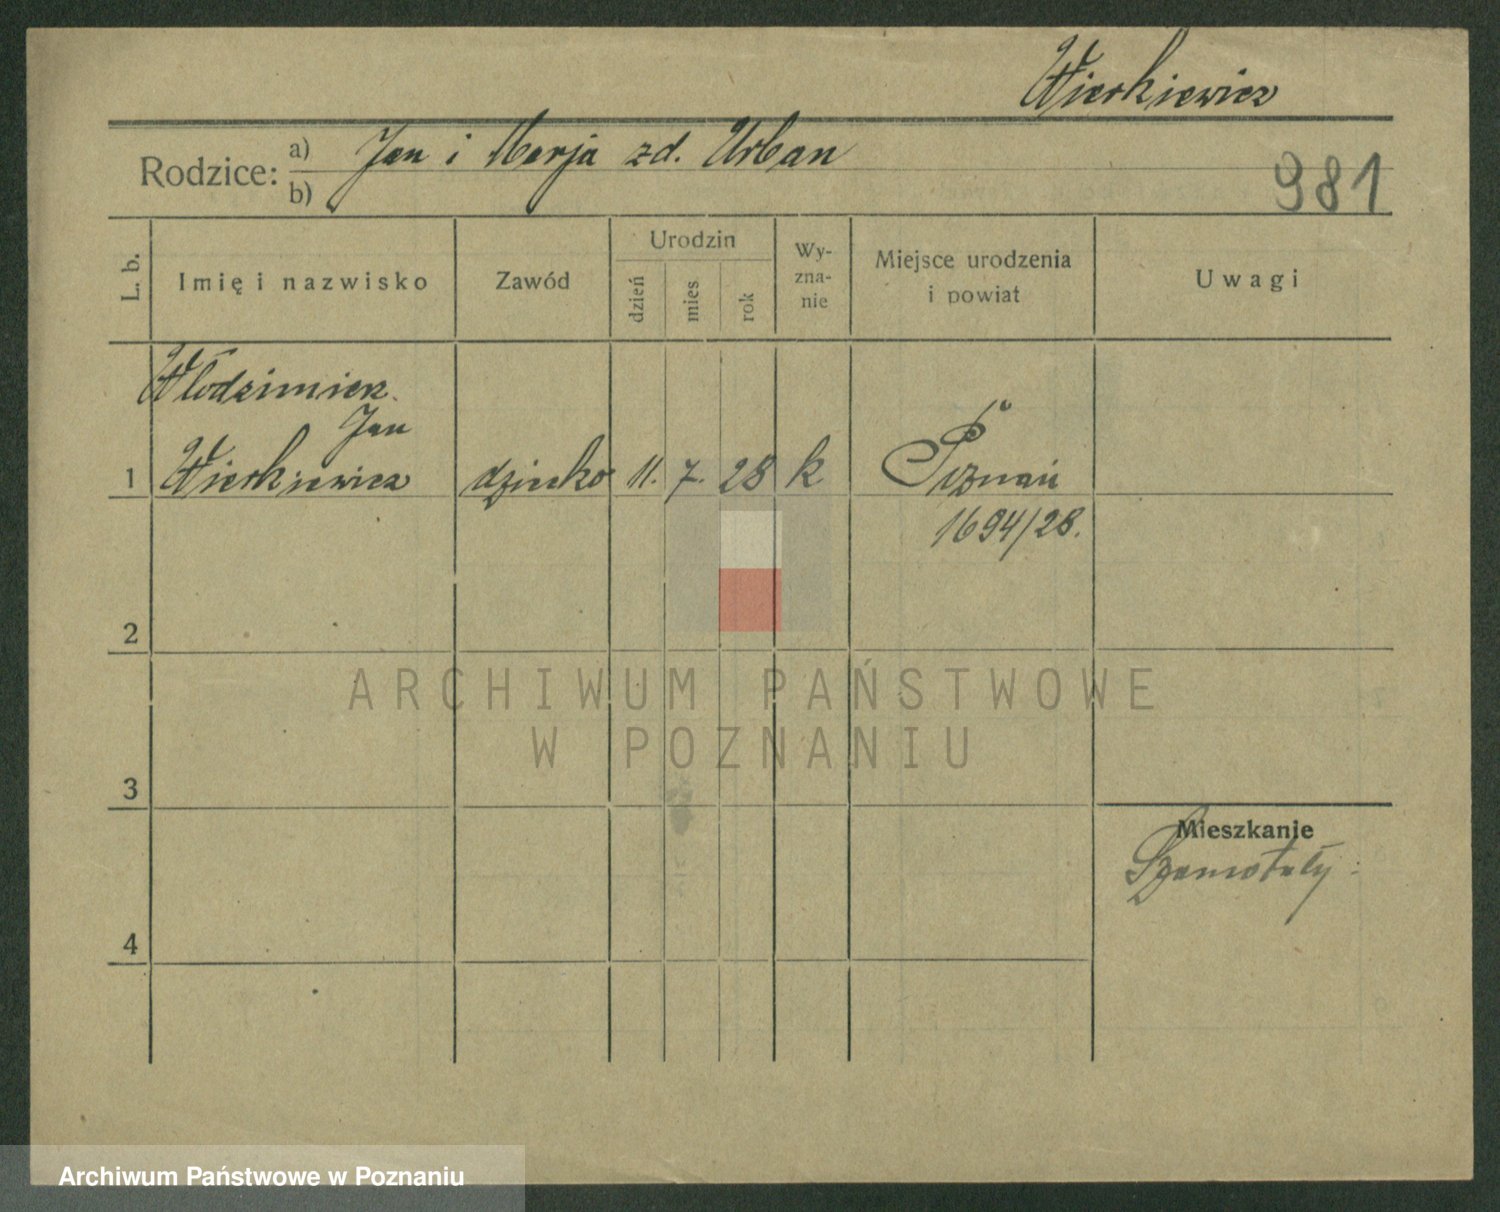 Wierkiewicz
Rodzice:
a) Jan i Marja zd. Urban
b)
981
L. b.
Imię i nazwisko
Zawód
Urodzin
dzień
mies
rok
Wy-
zna-
nie
Miejsce urodzenia
i powiat
Uwagi
Włodzimierz
Jan
1 Wierkiewicz dziecko 11. 7. 28 k Poznań
1694/28.
2
ARCHIWUM PAŃSTWOWE
W POZNANIU
3
Mieszkanie
Szamotuły
4
Archiwum Państwowe w Poznaniu